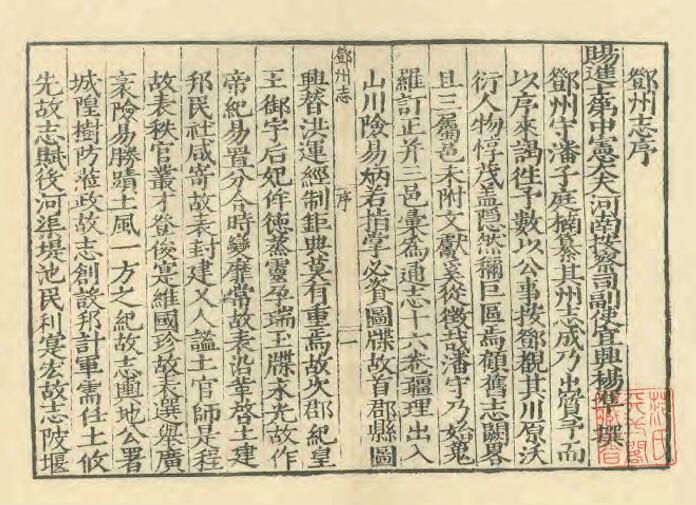 鄧州志序
賜進士第中憲大夫河南按察司副使宜興楊撰
鄧州守潘子庭楠纂其州志成乃出質予而
以序來謁徃予數以公事按鄧觀其川原沃
衍人物惇茂盖隱然稱巨區焉顧舊志闕畧
且三屬邑未附文獻奚從徵哉潘守乃始蒐
羅訂正并三邑彙為通志十六卷疆理出入
山川險易炳若指掌必資圖牒故首郡縣圖
鄧州志 序 一
興替洪運經制鉅典莫有重焉故次郡紀皇
王御宇后妃侔德蒸靈孕瑞玉牒末光故作
帝紀易置分合時變靡常故表沿革啓土建
邦民社咸寄故表封建乂人謐土官師是程
故表秩官叢才登俊寔維國珍故表選舉廣
袤險易勝蹟土風一方之紀故志輿地公署
城隍樹防蒞政故志創設邦計軍需任土攸
先故志賦役河渠堤池民利寔宏故志陂堰
范氏
天一閣
藏書